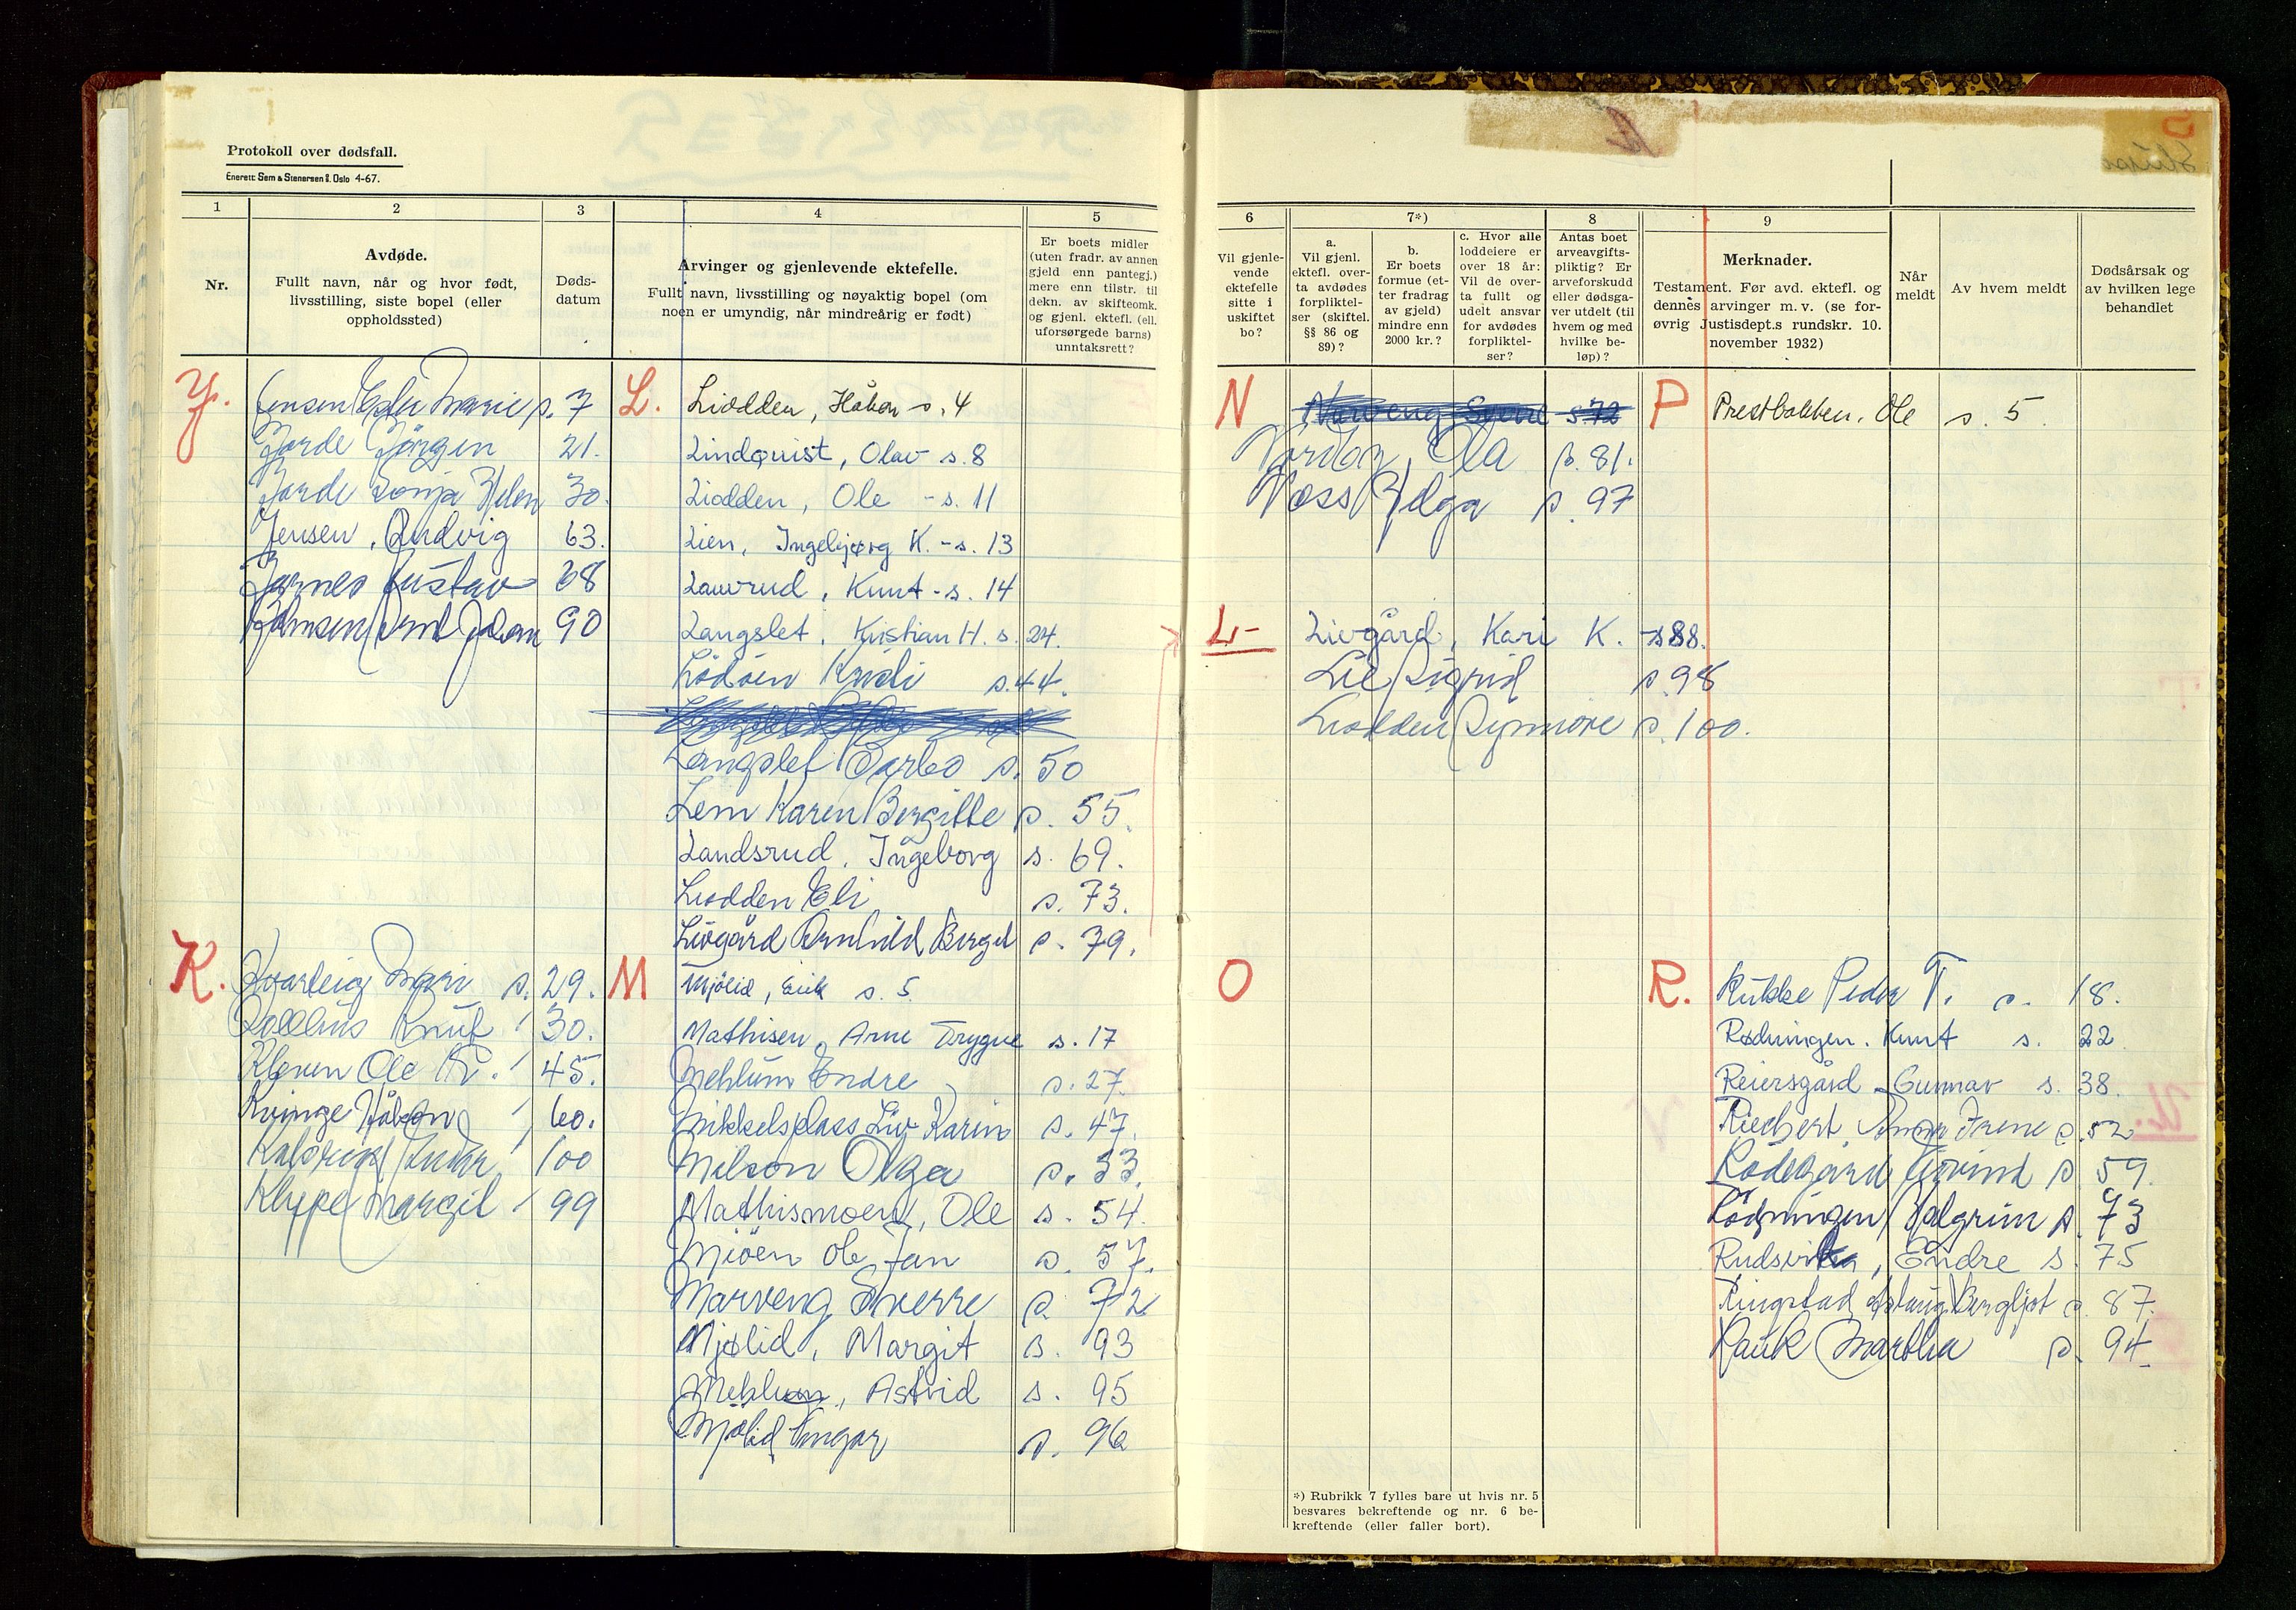 Protokoll over dødsfall.
Enerett: Sem & Stenersen A/S. Oslo 4-67.
1
2
3
4
5
Nr.
Avdøde.
Fullt navn, når og hvor født,
livsstilling, siste bopel (eller
oppholdssted)
Døds-
datum
Arvinger og gjenlevende ektefelle.
Fullt navn, livsstilling og nøyaktig bopel (om
noen er umyndig, når mindreårig er født)
Er boets midler
(uten fradr. av annen
gjeld enn pantegj.)
mere enn tilstr. til
dekn. av skifteomk.
og gjenl. ektefl. (ell.
uforsørgede barns)
unntaksrett?
J.
Jensen Ester Marie s. 7
Jorde Jörgen 21.
Jorde Sonja Helen 30.
Jensen, Ludvig 63.
Jarnes Gustav 68
Johnsen Johan 90
K.
Kvarteig Mari s. 29.
Knut 30.
Kleven Ole Kr. 45.
Kvinge Håkon 60.
100
Klype Margit 99
L.
Liodden, Håkon s. 4
Lindquist, Olav s. 8
Liodden, Ole - s. 11
Lien, Ingebjørg K. - s. 13
Lauvrud, Knut - s. 14
Langslet, Kristian H. s. 24.
Lödöen Kristi s. 44.
Langslet s. 50
Lem Karen Bergitte s. 55.
Landsrud, Ingeborg s. 69.
Liodden Eli s. 73.
Livgård Bergit s. 79.
M
Mjölid, Eirik s. 5.
Mathisen, Arne Trygve s. 17
Mehlum Endre s. 27.
Mikkelsplass Liv Karin s. 47.
Nilson Olga s. 53.
Mathismoen, Ole s. 54.
Mjöen Ole Jan s. 57.
Marveng Sverre s. 72
Mjølid, Margit s. 93
Mehlum, Astrid s. 95
Mjölid Ingar s. 96
6
7*)
8
9
Vil gjenle-
vende
ektefelle
sitte i
uskiftet
bo?
a.
Vil gjenl.
ektefl. over-
ta avdødes
forpliktel-
ser (skiftel.
§§ 86 og
89)?
b.
Er boets
formue (et-
ter fradrag
av gjeld)
mindre enn
2000 kr.?
c. Hvor alle
loddeiere er
over 18 år:
Vil de over-
ta fullt og
udelt ansvar
for avdødes
forpliktel-
ser?
Antas boet
arveavgifts-
pliktig? Er
arveforskudd
eller dødsga-
ver utdelt (til
hvem og med
hvilke be-
løp)?
Merknader.
Testament. Før avd. ektefl. og
dennes arvinger m. v. (se for-
øvrig Justisdept.s rundskr. 10.
november 1932)
Når
meldt
Av hvem meldt
Dødsårsak og
av hvilken lege
behandlet
N
Narveng Sverre s 72
Nordby, Ola s. 81.
Næss Helga s. 97
L-
Livgård, Kari K. - s 88.
Lie Sigrid s. 98
Liodden Synnøve s. 100.
O
P
Prestbakken, Ole s. 5.
R.
Rukke Peder T. s. 18.
Rødningen, Knut s. 22
Reiersgård Gunnar s. 38.
Riechert, Anna Irene s. 52
Rodegård Eivind s 59.
Rödningen Halgrim s. 73
Rudsvika, Endre s. 75
Ringstad Aslaug Bergljot s. 87.
Rauk Martha s. 94.
*) Rubrikk 7 fylles bare ut hvis nr. 5
besvares bekreftende og nr. 6 be-
kreftende (eller faller bort).